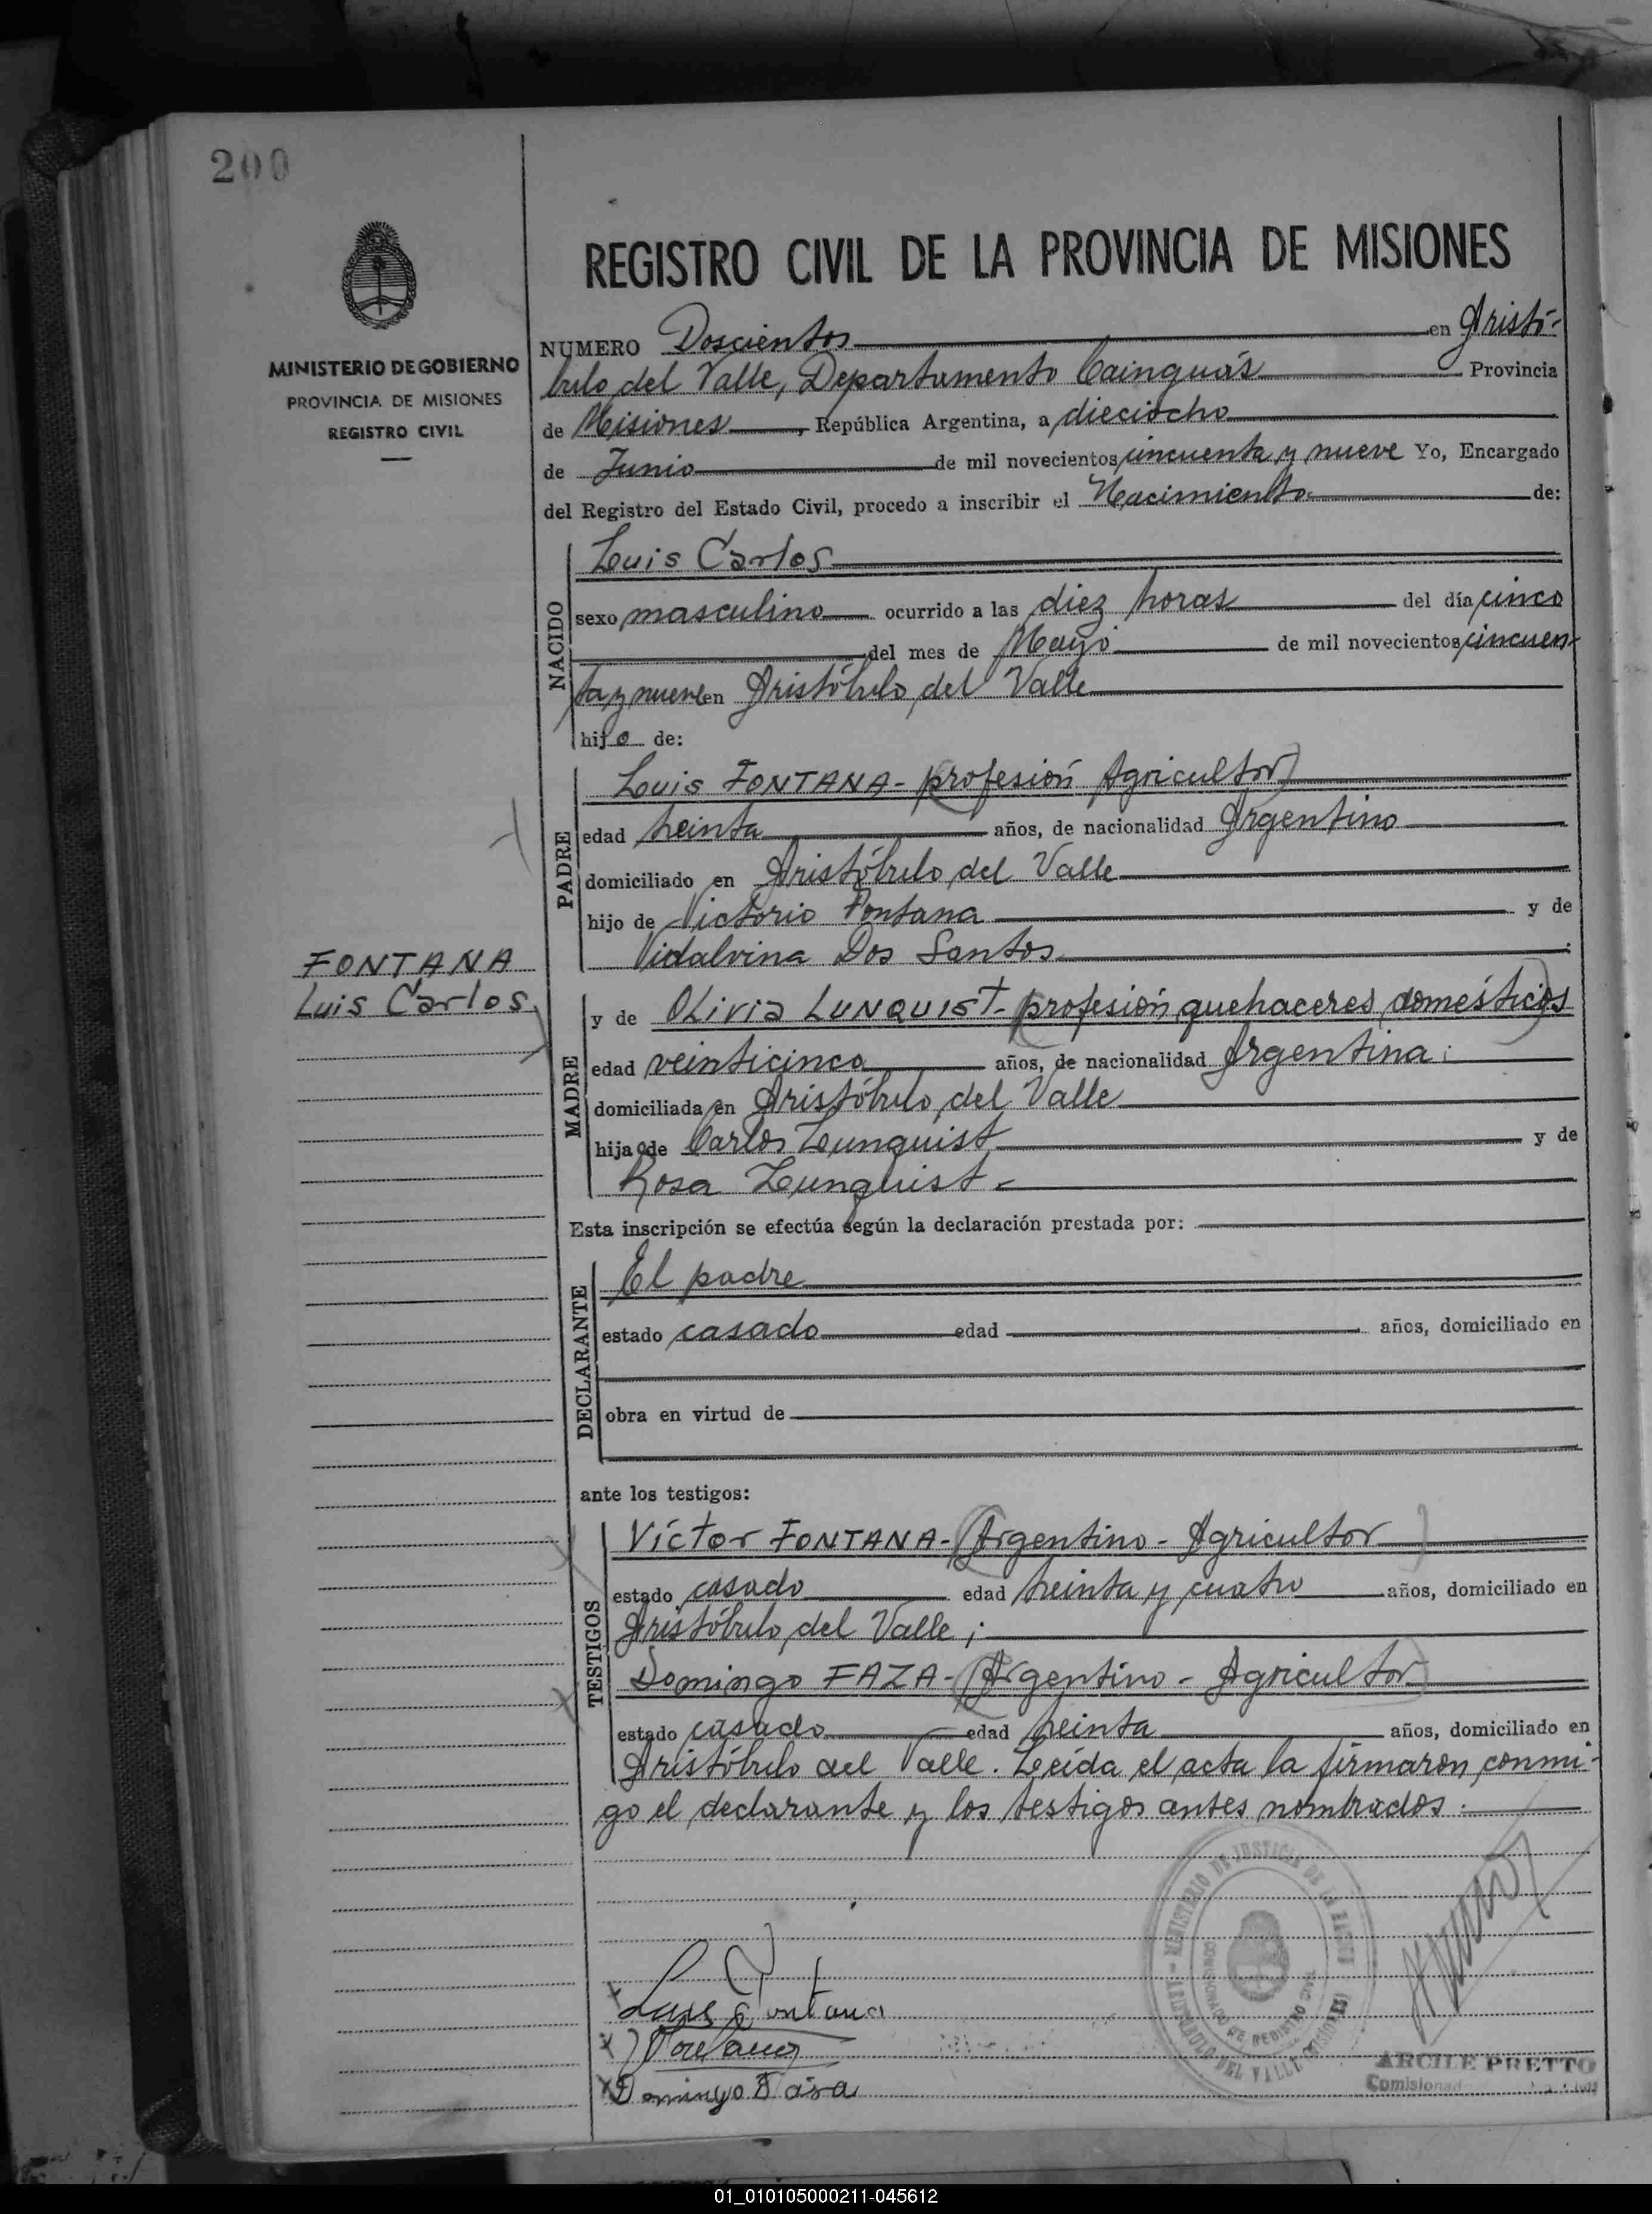 200
MINISTERIO DE GOBIERNO
PROVINCIA DE MISIONES
REGISTRO CIVIL
FONTANA
Luis Carlos
REGISTRO CIVIL DE LA PROVINCIA DE MISIONES
NUMERO Doscientos en Aristó-
bulo del Valle, Departamento Cainguás Provincia
de Misiones, República Argentina, a dieciocho
de Junio de mil novecientos cincuenta y nueve Yo, Encargado
del Registro del Estado Civil, procedo a inscribir el Nacimiento de:
NACIDO
Luis Carlos
sexo masculino ocurrido a las diez horas del día cinco
del mes de Mayo de mil novecientos cincuen-
ta y nueve en Aristóbulo del Valle
hijo de:
PADRE
Luis FONTANA - (profesión Agricultor)
edad treinta años, de nacionalidad Argentino
domiciliado en Aristóbulo del Valle
hijo de Victorio Fontana y de
Vidalvina Dos Santos ;
MADRE
y de OLivia LUNQUIST - (profesión quehaceres domésticos)
edad veinticinco años, de nacionalidad Argentina;
domiciliada en Aristóbulo del Valle
hija de Carlos Lunquist y de
Rosa Lunquist.-
Esta inscripción se efectúa según la declaración prestada por:
DECLARANTE
El padre
estado casado edad años, domiciliado en
obra en virtud de
ante los testigos:
TESTIGOS
Víctor FONTANA - (Argentino - Agricultor)
estado casado edad treinta y cuatro años, domiciliado en
Aristóbulo del Valle ;
Domingo FAZA - (Argentino - Agricultor)
estado casado edad treinta años, domiciliado en
Aristóbulo del Valle. Leída el acta la firmaron conmi-
go el declarante y los testigos antes nombrados.
MINISTERIO DE JUSTICIA DE LA NACION
ARISTOBULO DEL VALLE (MISIONES)
REGISTRO CIVIL
Luis Fontana
Domingo Fasa
ARCILE PRETTO
Comisionado
01_010105000211-045612